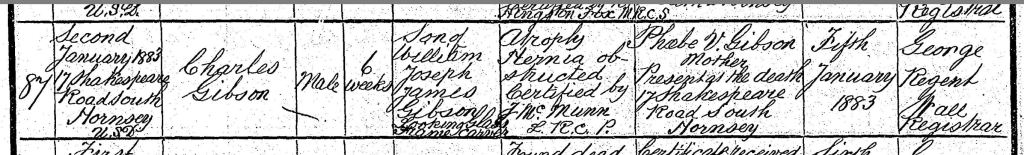 U.S.D.
Hingston Fox M.R.C.S.
Registrar
87
Second
January 1883
17 Shakespeare
Road South
Hornsey
U.S.D.
Charles
Gibson
Male
6
weeks
Son of
William
Joseph
James
Gibson
Looking Glass
Frame Carver
Atrophy
Hernia ob-
structed
Certified by
J. Mc Munn
L.R.C.P.
Phebe V. Gibson
Mother
Present at the death
17 Shakespeare
Road South
Hornsey
Fifth
January
1883
George
Regent
Wall
Registrar
First
Found dead
Certificate received
Sixth